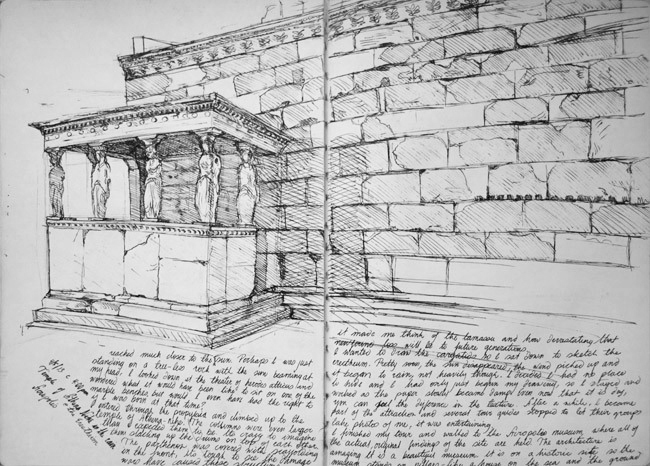 reached much closer to the sun. Perhaps I was just
standing on a tree-less rock with the sun beaming at
my head. I looked down at the theatre of herodes atticus and
wondered what it would have been like to sit on one of the
marble benches but would I even have had the right to
if I was born at that time?
I entered through the propylaea and climbed up to the
temple of Athena-nike. The columns were even larger
than I expected them to be. Its crazy to imagine
them stacking up the drums on top of each other.
The parthenon was covered with scaffolding
in the front, its tough to damage
wars have caused these
it made me think of the and how devastating that
newfound loss will be to future generations.
I wanted to draw the caryatids so I sat down to sketch the
erectheum. Pretty soon, the sun disappeared, the wind picked up and
it began to rain, not heavily I decided I had no place
to hide and I had only just begun my drawing, so I stayed and
worked as the paper slowly became damp. Even now that it is dry,
you can feel the difference in the texture. After a while, I became
part of the attraction and several tour guides stopped to let their groups
take photos of me, it was entertaining.
I finished my tour and walked to the Acropolis museum, where all of
the actual, original findings on the site are held. The architecture is
amazing. It is a beautiful museum. it is on a historic site, so the
museum stands on pillars- like a house on the sea and the ground